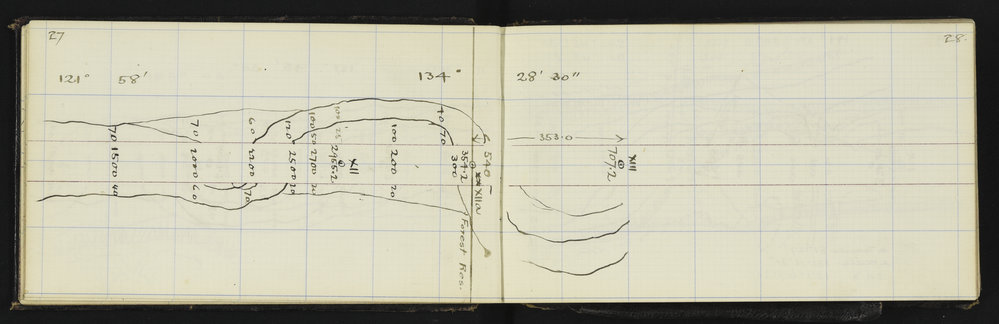 27
28.
121° 58'
134° 28' 30"
70 1500 40
70 2000 60
60 2200 70
120 2500 20
100 50 2700 20
100 25 2955.2
XII
100 200 20
40 70
354.2
300
540
XIIa
Forest Res.
353.0
XIII
707.2